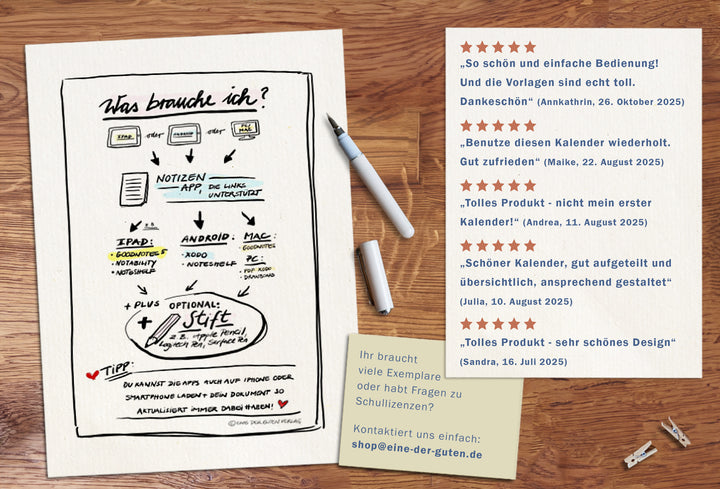 Was brauche ich?
IPAD oder ANDROID oder PC/MAC
NOTIZEN
APP, DIE LINKS
UNTERSTÜTZT
z.B.
IPAD:
• GOODNOTES 5
• NOTABILITY
• NOTESHELF
ANDROID:
• XODO
• NOTESHELF
MAC:
• GOODNOTES
PC:
• PDF XODO
• DRAWBOARD
+ PLUS OPTIONAL:
+ Stift
z.B. Apple Pencil,
Logitech Pen, Surface Pen
TIPP:
DU KANNST DIE APPS AUCH AUF IPHONE ODER
SMARTPHONE LADEN + DEIN DOKUMENT SO
AKTUALISIERT IMMER DABEI HABEN!
© EINE DER GUTEN VERLAG
„So schön und einfache Bedienung!
Und die Vorlagen sind echt toll.
Dankeschön“ (Annkathrin, 26. Oktober 2025)
„Benutze diesen Kalender wiederholt.
Gut zufrieden“ (Maike, 22. August 2025)
„Tolles Produkt - nicht mein erster
Kalender!“ (Andrea, 11. August 2025)
„Schöner Kalender, gut aufgeteilt und
übersichtlich, ansprechend gestaltet“
(Julia, 10. August 2025)
„Tolles Produkt - sehr schönes Design“
(Sandra, 16. Juli 2025)
Ihr braucht
viele Exemplare
oder habt Fragen zu
Schullizenzen?
Kontaktiert uns einfach:
shop@eine-der-guten.de